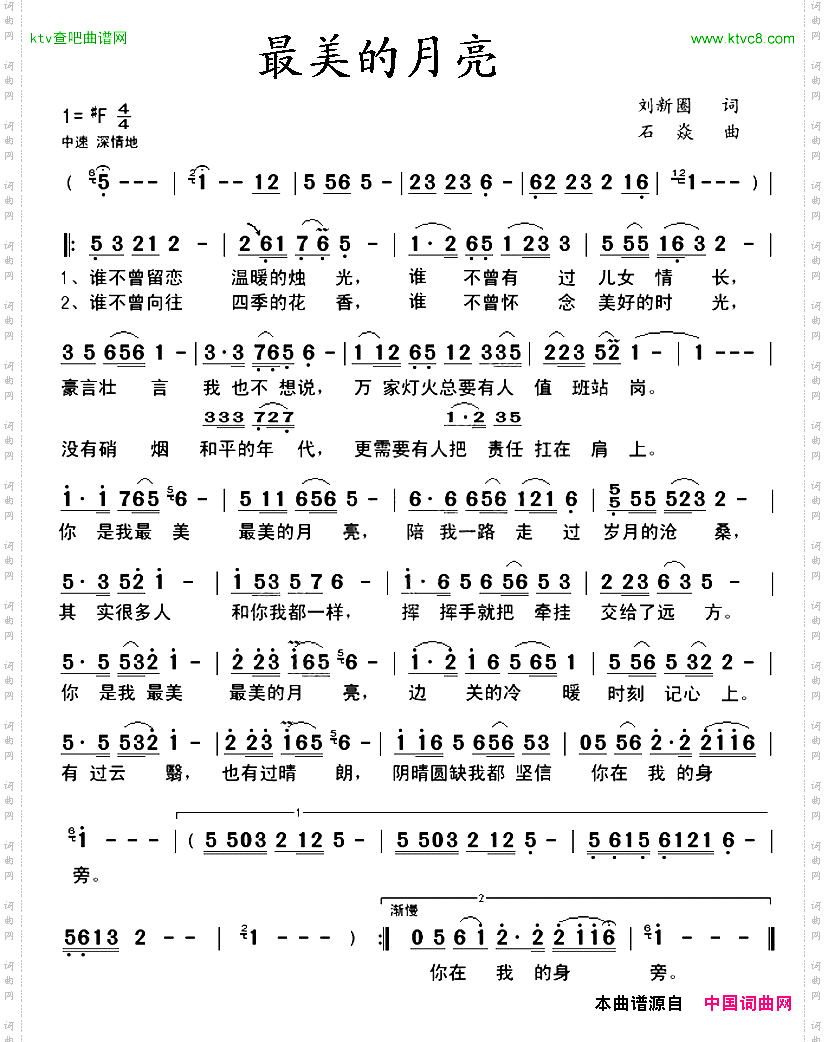 ktv查吧曲谱网 www.ktvc8.com
最美的月亮
1=♯F 4/4
中速 深情地
刘新圈 词
石焱 曲
( 6 5 - - - | 2 1 - - 12 | 5 56 5 - | 23 23 6 - | 62 23 2 16 | 12 1 - - - ) |
‖: 5 3 21 2 - | 2 61 7 6 5 - | 1· 2 65 1 23 3 | 5 55 16 3 2 - |
1、谁不曾留恋 温暖的烛 光， 谁 不曾有 过 儿女 情 长，
2、谁不曾向往 四季的花 香， 谁 不曾怀 念 美好的时 光，
3 5 656 1 - | 3· 3 765 6 - | 1 12 65 12 335 | 223 52 1 - | 1 - - - |
豪言壮 言 我 也不 想说， 万 家灯火总要有人 值 班站 岗。
333 727 1· 2 35
没有硝 烟 和平的年 代， 更需要有人把 责任 扛在 肩 上。
1· 1 765 5 6 - | 5 11 656 5 - | 6· 6 656 121 6 | 5 5 55 523 2 - |
你 是我最 美 最美的月 亮， 陪 我一路 走 过 岁月的沧 桑，
5· 3 52 1 - | 1 53 5 7 6 - | 1· 6 5 6 56 5 3 | 2 23 6 3 5 - |
其 实很多人 和你我都一样， 挥 挥手就把 牵挂 交给了远 方。
5· 5 532 1 - | 2 23 165 5 6 - | 1· 2 1 6 5 65 1 | 5 56 5 32 2 - |
你 是我 最美 最美的月 亮， 边 关的冷 暖 时刻 记心 上。
5· 5 532 1 - | 2 23 165 5 6 - | 1 116 5 656 53 | 05 56 2· 2 2116 |
有 过云 翳， 也有过晴 朗， 阴晴圆缺我都 坚信 你在 我 的身
1
6 1 - - - | ( 5 503 2 12 5 - | 5 503 2 12 5 - | 5 615 6121 6 - |
旁。
2
渐慢
5613 2 - - | 2 1 - - - ) :‖ 0 5 6 1 2· 2 2 116 | 6 1 - - - ‖
你在 我 的身 旁。
本曲谱源自 中国词曲网